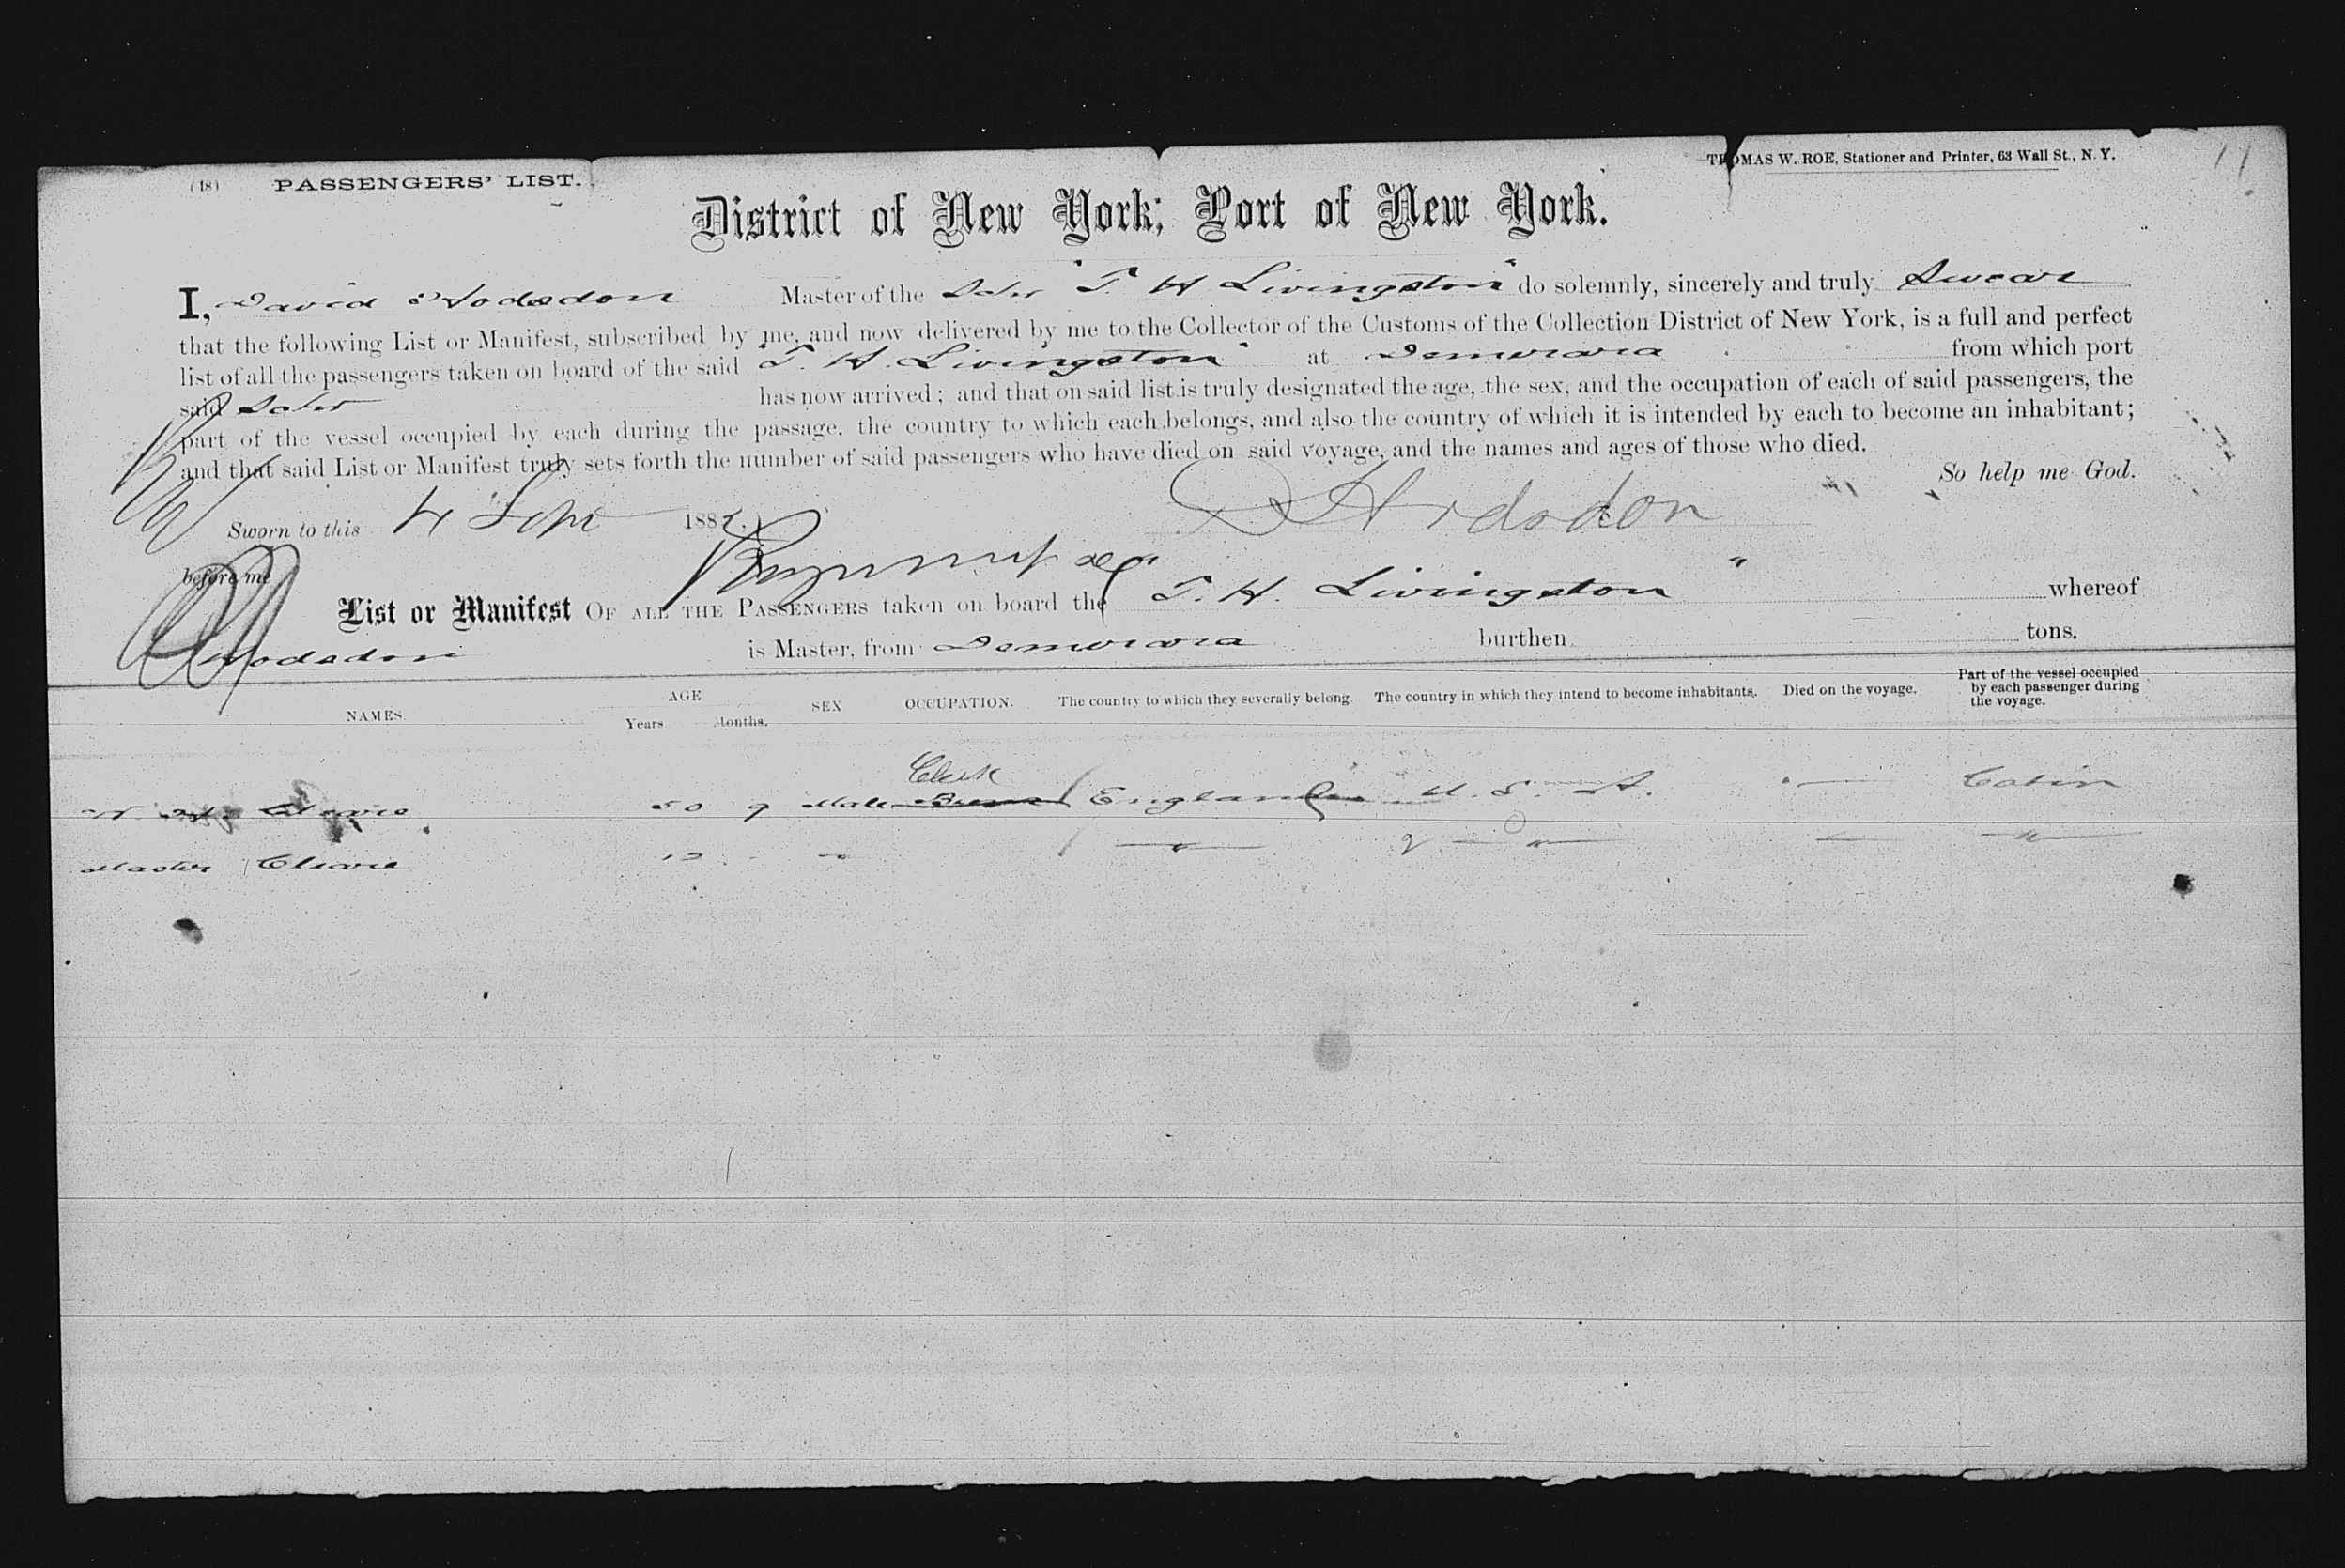 (18) PASSENGERS' LIST. THOMAS W. ROE, Stationer and Printer, 63 Wall St., N. Y.
District of New York; Port of New York.
I, David Hodsdon Master of the Schr "T H Livingston" do solemnly, sincerely and truly Swear
that the following List or Manifest, subscribed by me, and now delivered by me to the Collector of the Customs of the Collection District of New York, is a full and perfect
list of all the passengers taken on board of the said "T. H. Livingston" at Demerara from which port
said Schr has now arrived; and that on said list is truly designated the age, the sex, and the occupation of each of said passengers, the
part of the vessel occupied by each during the passage, the country to which each belongs, and also the country of which it is intended by each to become an inhabitant;
and that said List or Manifest truly sets forth the number of said passengers who have died on said voyage, and the names and ages of those who died.
So help me God.
Sworn to this 4 Sept 1882. D Hodsdon
before me
List or Manifest OF ALL THE PASSENGERS taken on board the "T. H. Livingston" whereof
Hodsdon is Master, from Demerara burthen tons.
NAMES. AGE Years Months. SEX OCCUPATION. The country to which they severally belong. The country in which they intend to become inhabitants. Died on the voyage. Part of the vessel occupied by each passenger during the voyage.
Clerk
50 9 Male England U. S. A. — Cabin
Master Cleare " " " — "